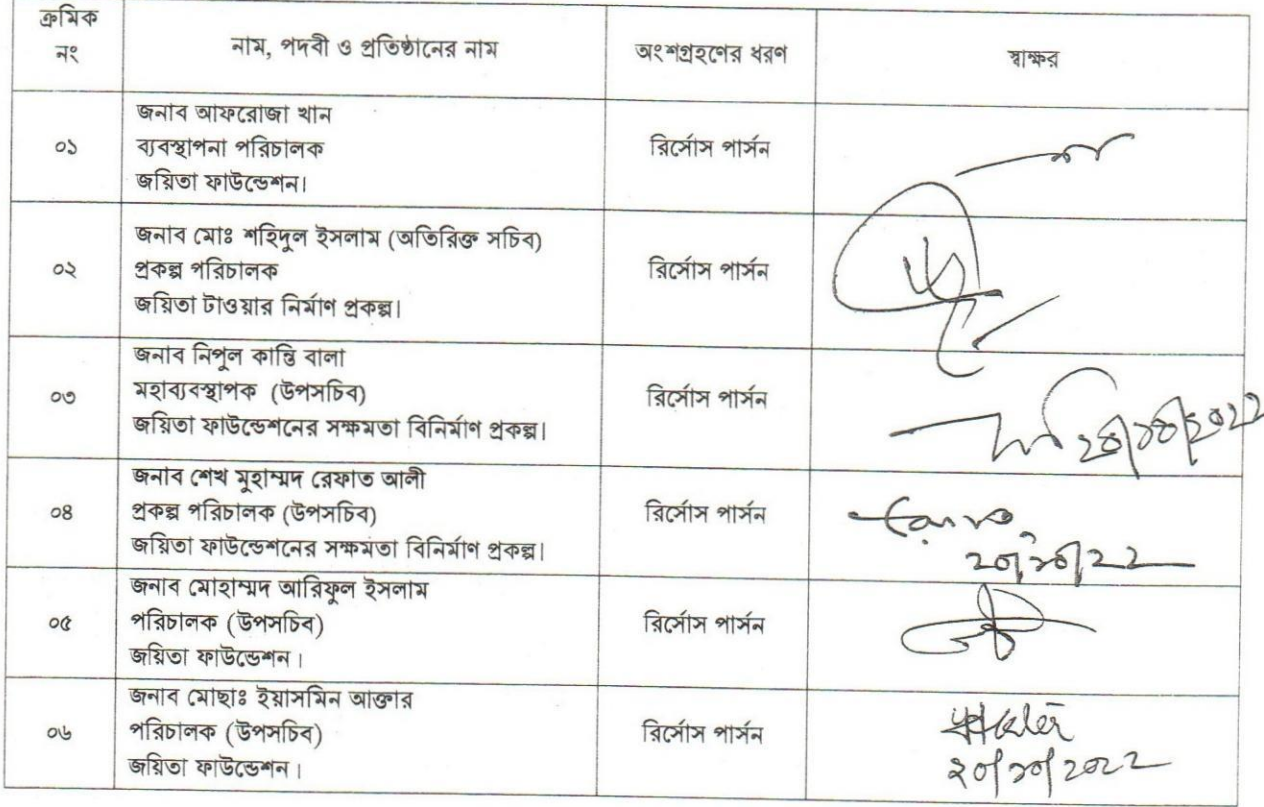 ক্রমিক
নং
নাম, পদবী ও প্রতিষ্ঠানের নাম
অংশগ্রহণের ধরণ
স্বাক্ষর
০১
জনাব আফরোজা খান
ব্যবস্থাপনা পরিচালক
জয়িতা ফাউন্ডেশন।
রির্সোস পার্সন
০২
জনাব মোঃ শহিদুল ইসলাম (অতিরিক্ত সচিব)
প্রকল্প পরিচালক
জয়িতা টাওয়ার নির্মাণ প্রকল্প।
রির্সোস পার্সন
০৩
জনাব নিপুল কান্তি বালা
মহাব্যবস্থাপক (উপসচিব)
জয়িতা ফাউন্ডেশনের সক্ষমতা বিনির্মাণ প্রকল্প।
রির্সোস পার্সন
০৪
জনাব শেখ মুহাম্মদ রেফাত আলী
প্রকল্প পরিচালক (উপসচিব)
জয়িতা ফাউন্ডেশনের সক্ষমতা বিনির্মাণ প্রকল্প।
রির্সোস পার্সন
২০/১০/২২
০৫
জনাব মোহাম্মদ আরিফুল ইসলাম
পরিচালক (উপসচিব)
জয়িতা ফাউন্ডেশন।
রির্সোস পার্সন
০৬
জনাব মোছাঃ ইয়াসমিন আক্তার
পরিচালক (উপসচিব)
জয়িতা ফাউন্ডেশন।
রির্সোস পার্সন
২০/১০/২০২২